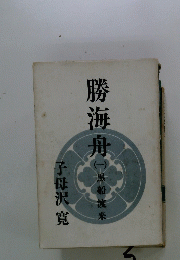 勝海舟
(一)黒船渡来
子母沢寛